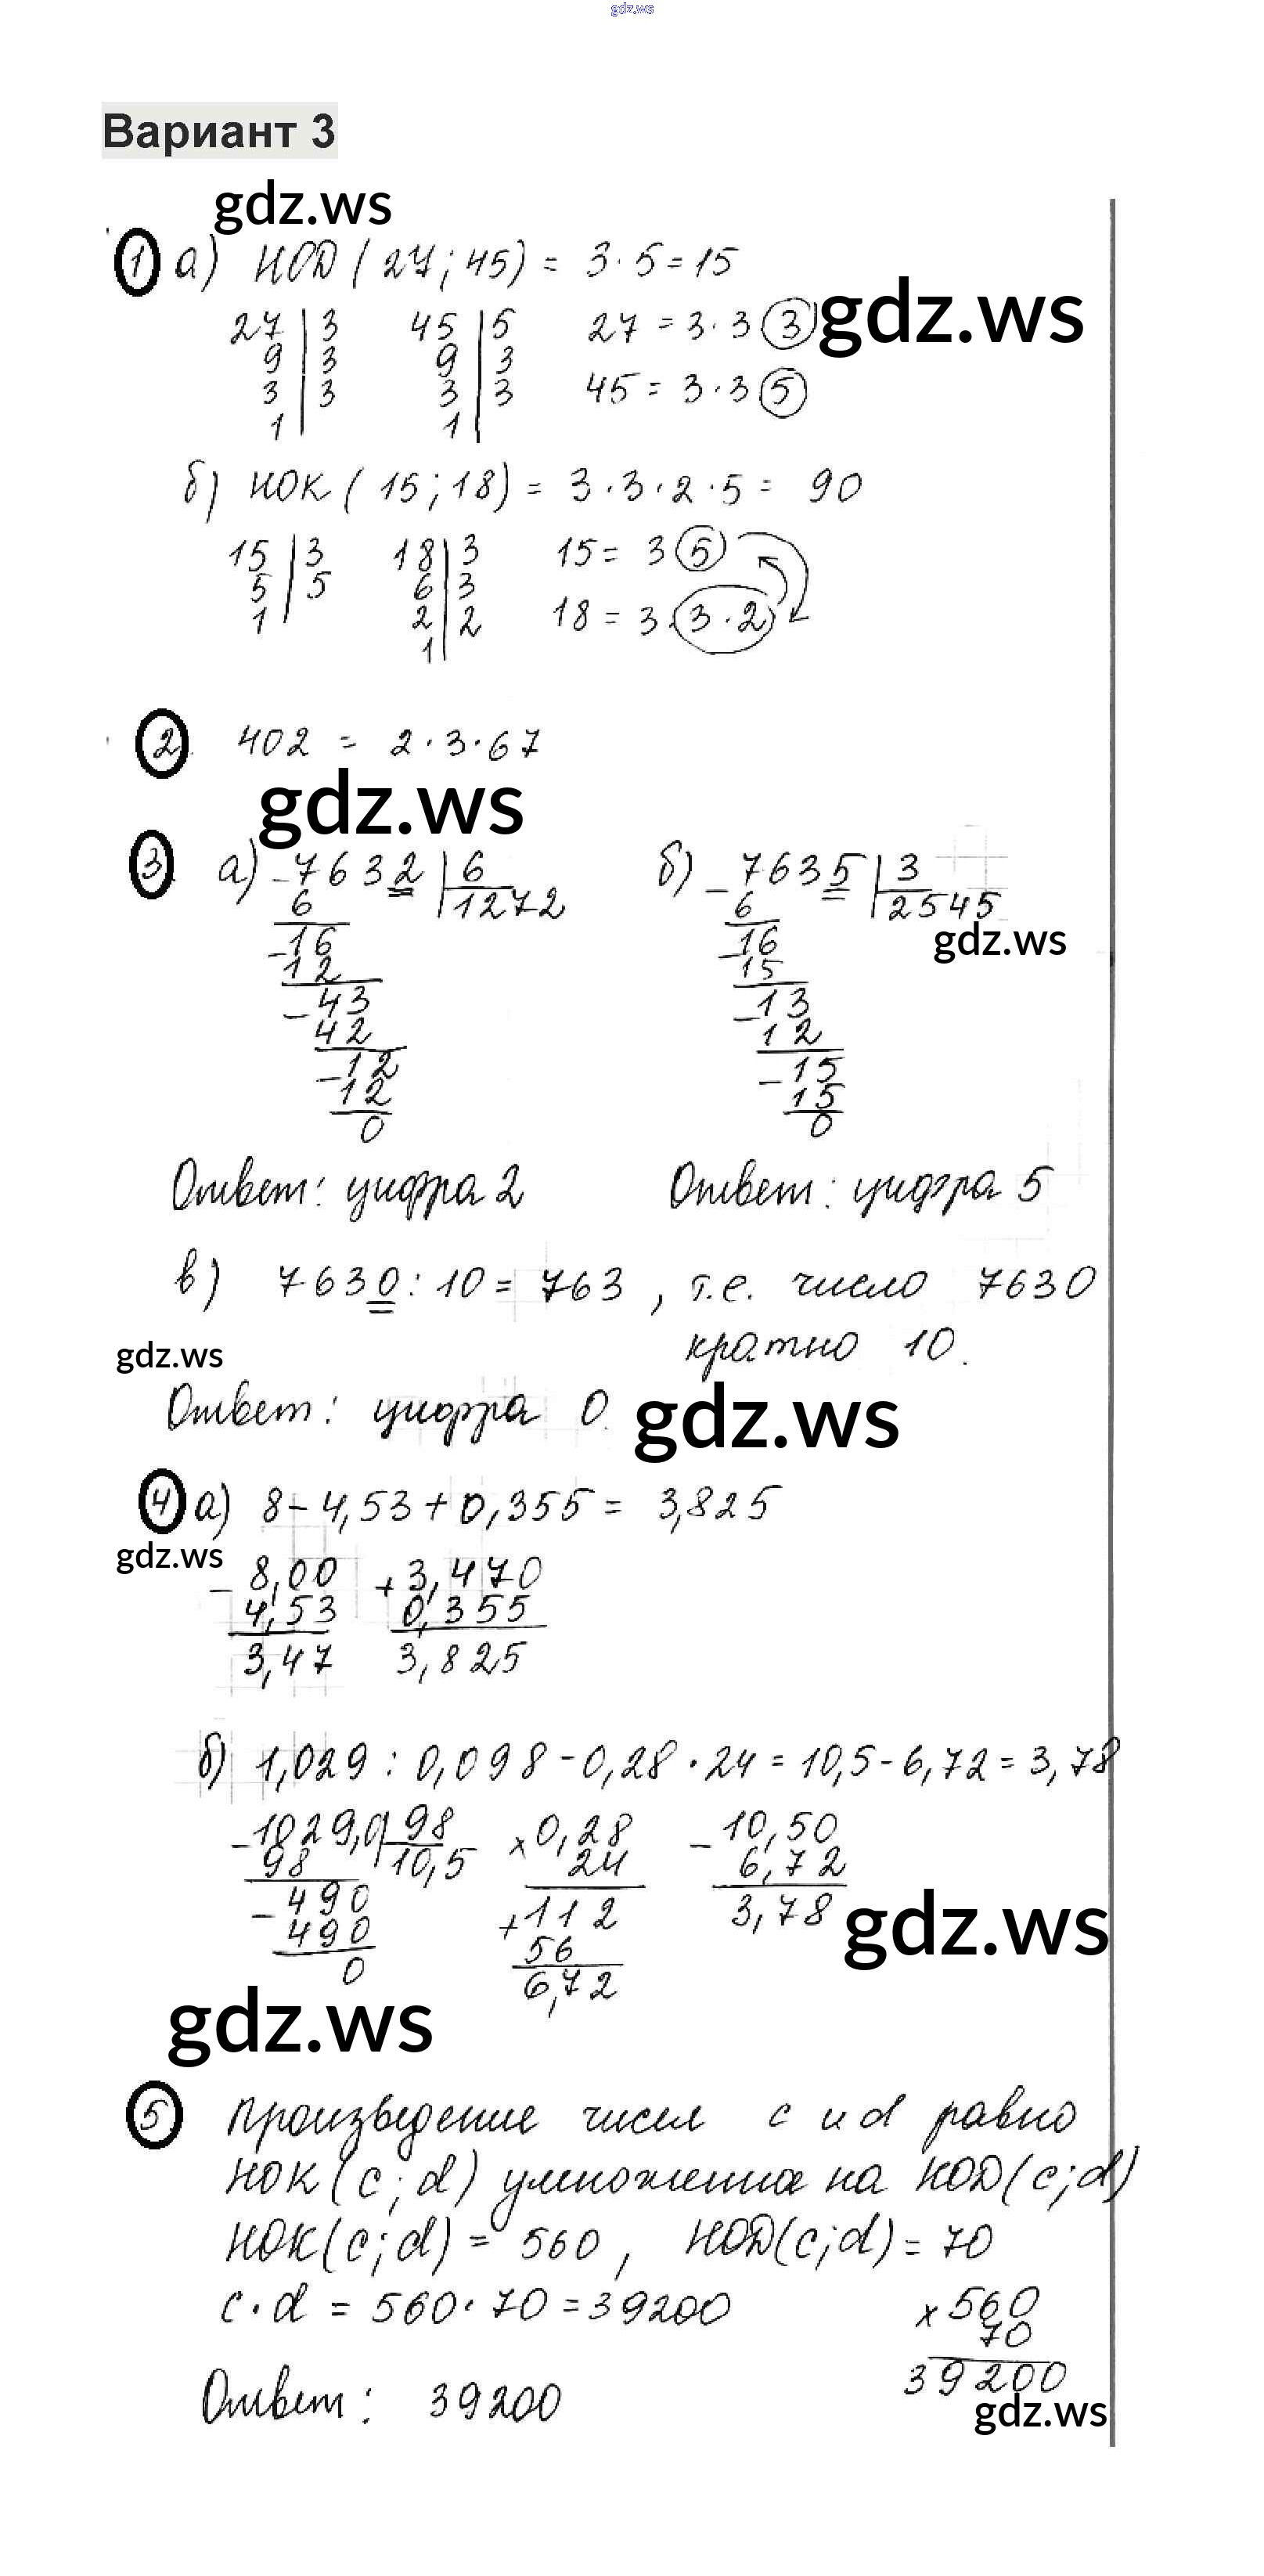 gdz.ws
Вариант 3
gdz.ws
1 а) НОД (27; 45) = 3·5=15
27 | 3 45 | 5 27 = 3·3 3 gdz.ws
9 | 3 9 | 3
3 | 3 3 | 3 45 = 3·3 5
1 1
б) НОК (15; 18) = 3·3·2·5= 90
15 | 3 18 | 3 15= 3 5
5 | 5 6 | 3
1 2 | 2 18 = 3·3·2
1
2. 402 = 2·3·67
gdz.ws
3. а) -7632 | 6 б) -7635 | 3
6 1272 6 2545
-16 -16 gdz.ws
12 15
-43 -13
42 12
-12 -15
12 15
0 0
Ответ: цифра 2 Ответ: цифра 5
в) 7630:10= 763, т.е. число 7630
кратно 10.
gdz.ws
Ответ: цифра 0. gdz.ws
4 а) 8-4,53+0,355= 3,825
gdz.ws
-8,00 +3,470
4,53 0,355
3,47 3,825
б) 1,029 : 0,098-0,28·24=10,5-6,72=3,78
-1029,0 | 98 ×0,28 -10,50
98 10,5 24 6,72
-490 +112 3,78 gdz.ws
490 56
0 6,72
gdz.ws
5 Произведение чисел c и d равно
НОК(c;d) умножению на НОД(c;d)
НОК(c;d)= 560, НОД(c;d)=70
c·d = 560·70=39200 ×560
70
39200
Ответ: 39200 gdz.ws